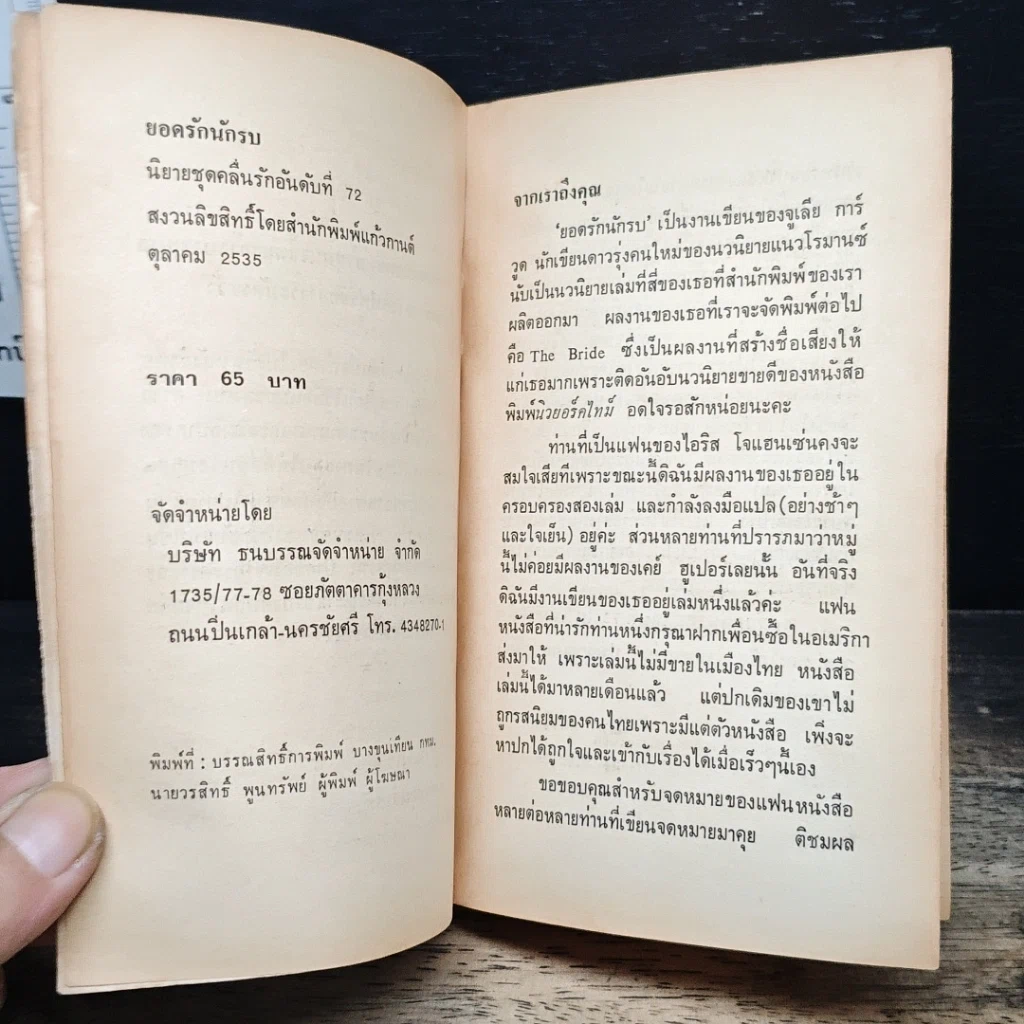 ยอดรักนักรบ
นิยายชุดคลื่นรักอันดับที่ 72
สงวนลิขสิทธิ์โดยสำนักพิมพ์แก้วกานต์
ตุลาคม 2535
ราคา 65 บาท
จัดจำหน่ายโดย
บริษัท ธนบรรณจัดจำหน่าย จำกัด
1735/77-78 ซอยภัตตาคารกุ้งหลวง
ถนนปิ่นเกล้า-นครชัยศรี โทร. 4348270-1
พิมพ์ที่ : บรรณสิทธิ์การพิมพ์ บางขุนเทียน กทม.
นายวรสิทธิ์ พูนทรัพย์ ผู้พิมพ์ ผู้โฆษณา
จากเราถึงคุณ
'ยอดรักนักรบ' เป็นงานเขียนของจูเลีย การ์
วูด นักเขียนดาวรุ่งคนใหม่ของนวนิยายแนวโรมานซ์
นับเป็นนวนิยายเล่มที่สี่ของเธอที่สำนักพิมพ์ของเรา
ผลิตออกมา ผลงานของเธอที่เราจะจัดพิมพ์ต่อไป
คือ The Bride ซึ่งเป็นผลงานที่สร้างชื่อเสียงให้
แก่เธอมากเพราะติดอันอับนวนิยายขายดีของหนังสือ
พิมพ์นิวยอร์คไทม์ อดใจรอสักหน่อยนะคะ
ท่านที่เป็นแฟนของไอริส โจแฮนเซ่นคงจะ
สมใจเสียทีเพราะขณะนี้ดิฉันมีผลงานของเธออยู่ใน
ครอบครองสองเล่ม และกำลังลงมือแปล(อย่างช้าๆ
และใจเย็น) อยู่ค่ะ ส่วนหลายท่านที่ปรารภมาว่าหมู่
นี้ไม่ค่อยมีผลงานของเคย์ ฮูเปอร์เลยนั้น อันที่จริง
ดิฉันมีงานเขียนของเธออยู่เล่มหนึ่งแล้วค่ะ แฟน
หนังสือที่น่ารักท่านหนึ่งกรุณาฝากเพื่อนซื้อในอเมริกา
ส่งมาให้ เพราะเล่มนี้ไม่มีขายในเมืองไทย หนังสือ
เล่มนี้ได้มาหลายเดือนแล้ว แต่ปกเดิมของเขาไม่
ถูกรสนิยมของคนไทยเพราะมีแต่ตัวหนังสือ เพิ่งจะ
หาปกได้ถูกใจและเข้ากับเรื่องได้เมื่อเร็วๆนี้เอง
ขอขอบคุณสำหรับจดหมายของแฟนหนังสือ
หลายต่อหลายท่านที่เขียนจดหมายมาคุย ติชมผล